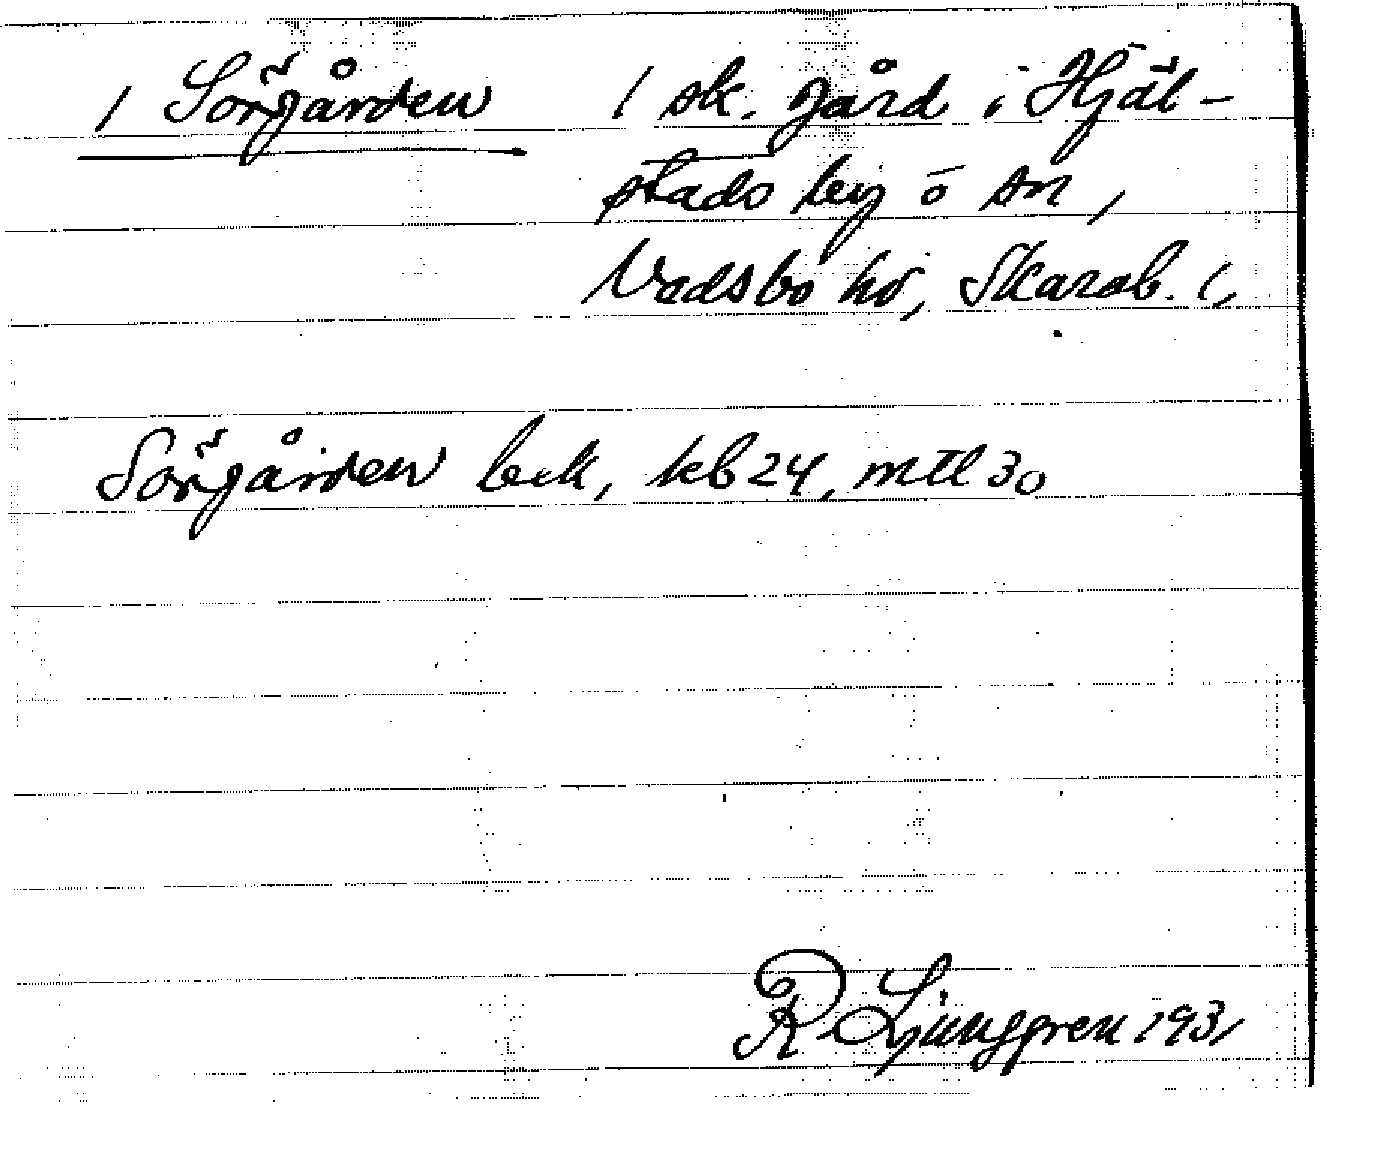 1 Sörgården 1 sk. gård i Hjäl-
stads by o sn,
Vadsbo hd, Skarab. l,
Sörgården bek, kb 24, mtl 30
R Ljunggren 1931